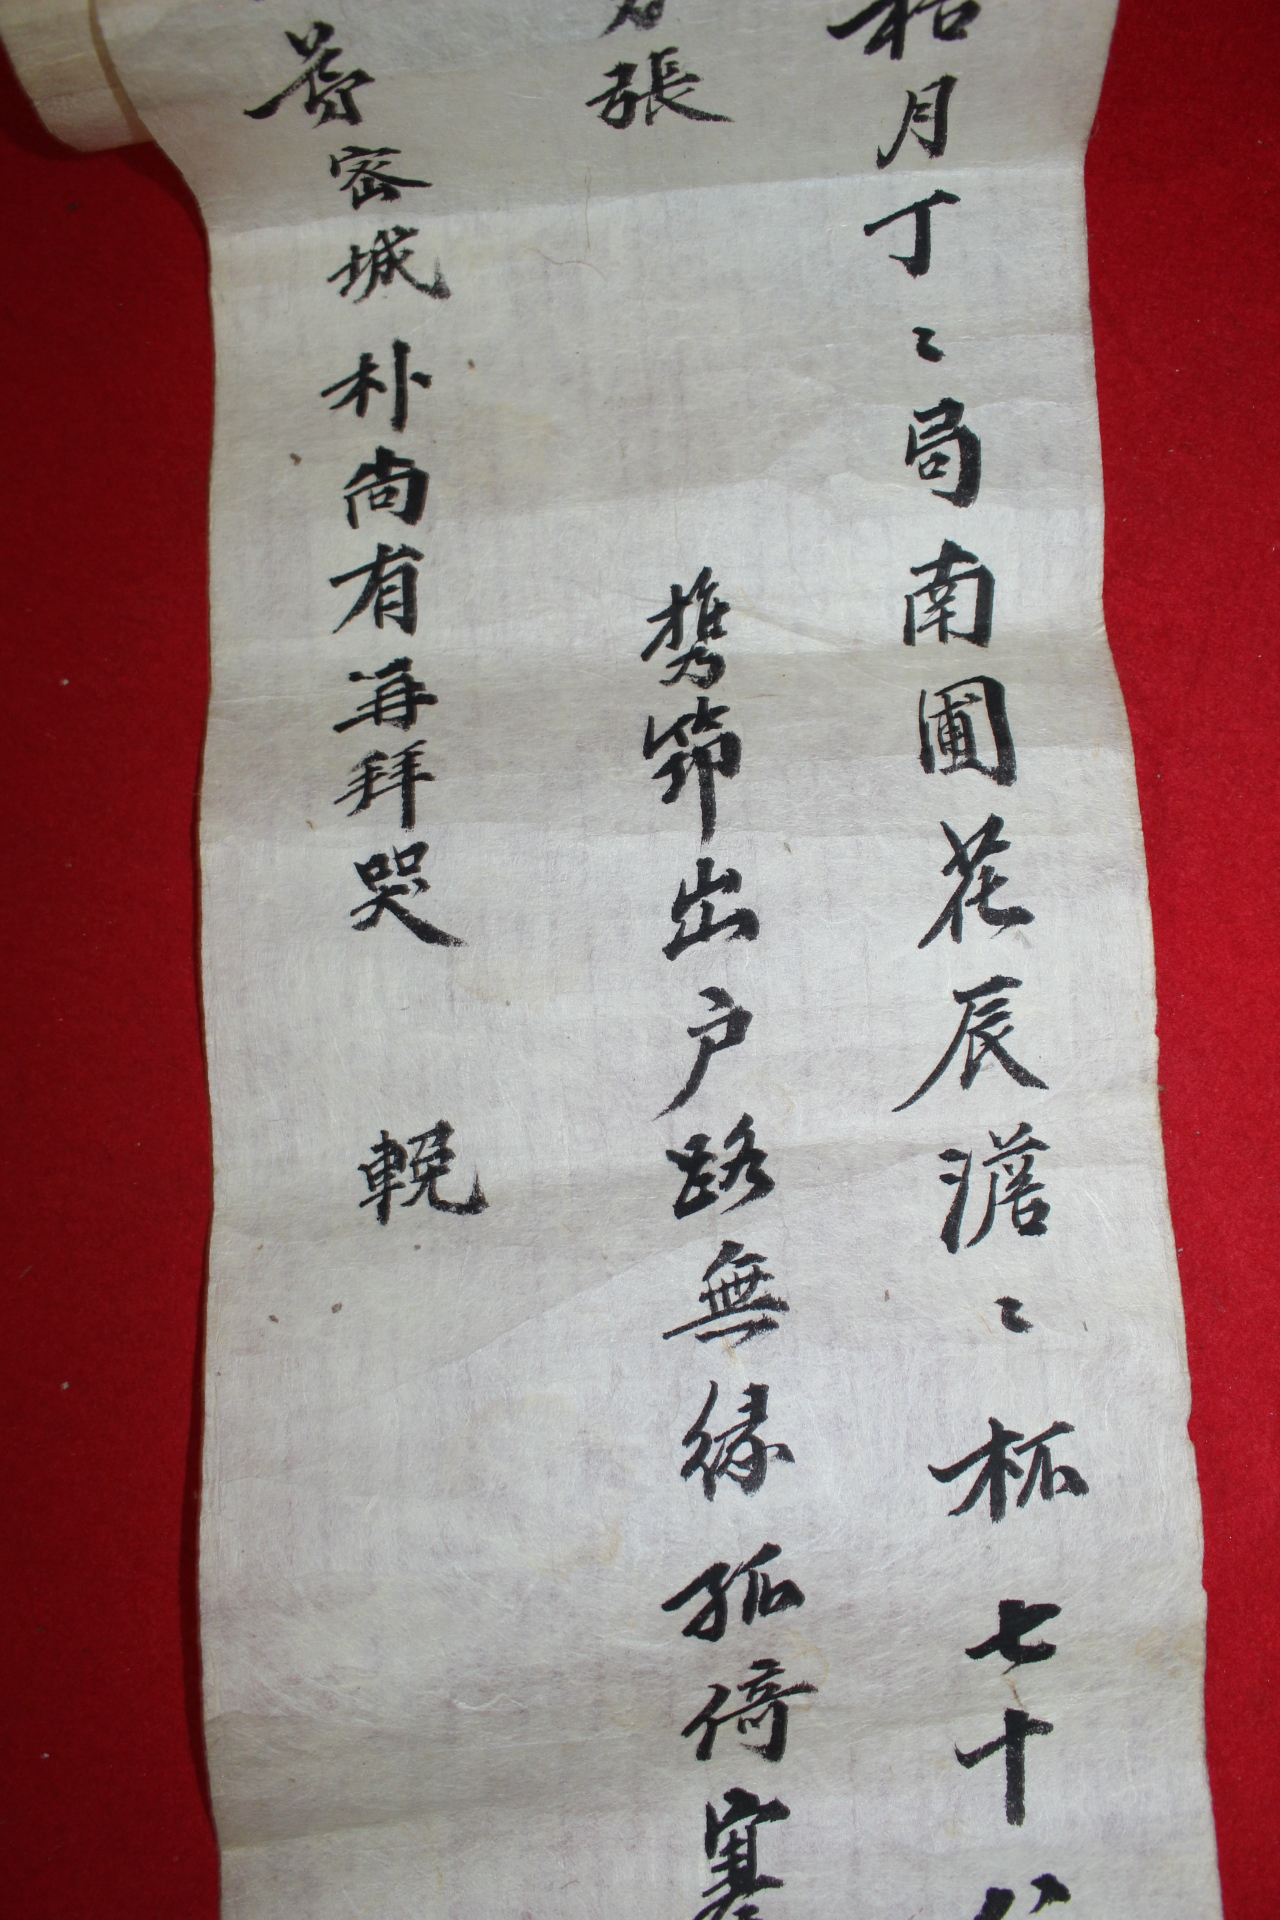 月丁〻局南圃花辰澹〻杯七十八
張 携筇出户路無緣孤倚寒
密城朴尚有再拜哭 輓